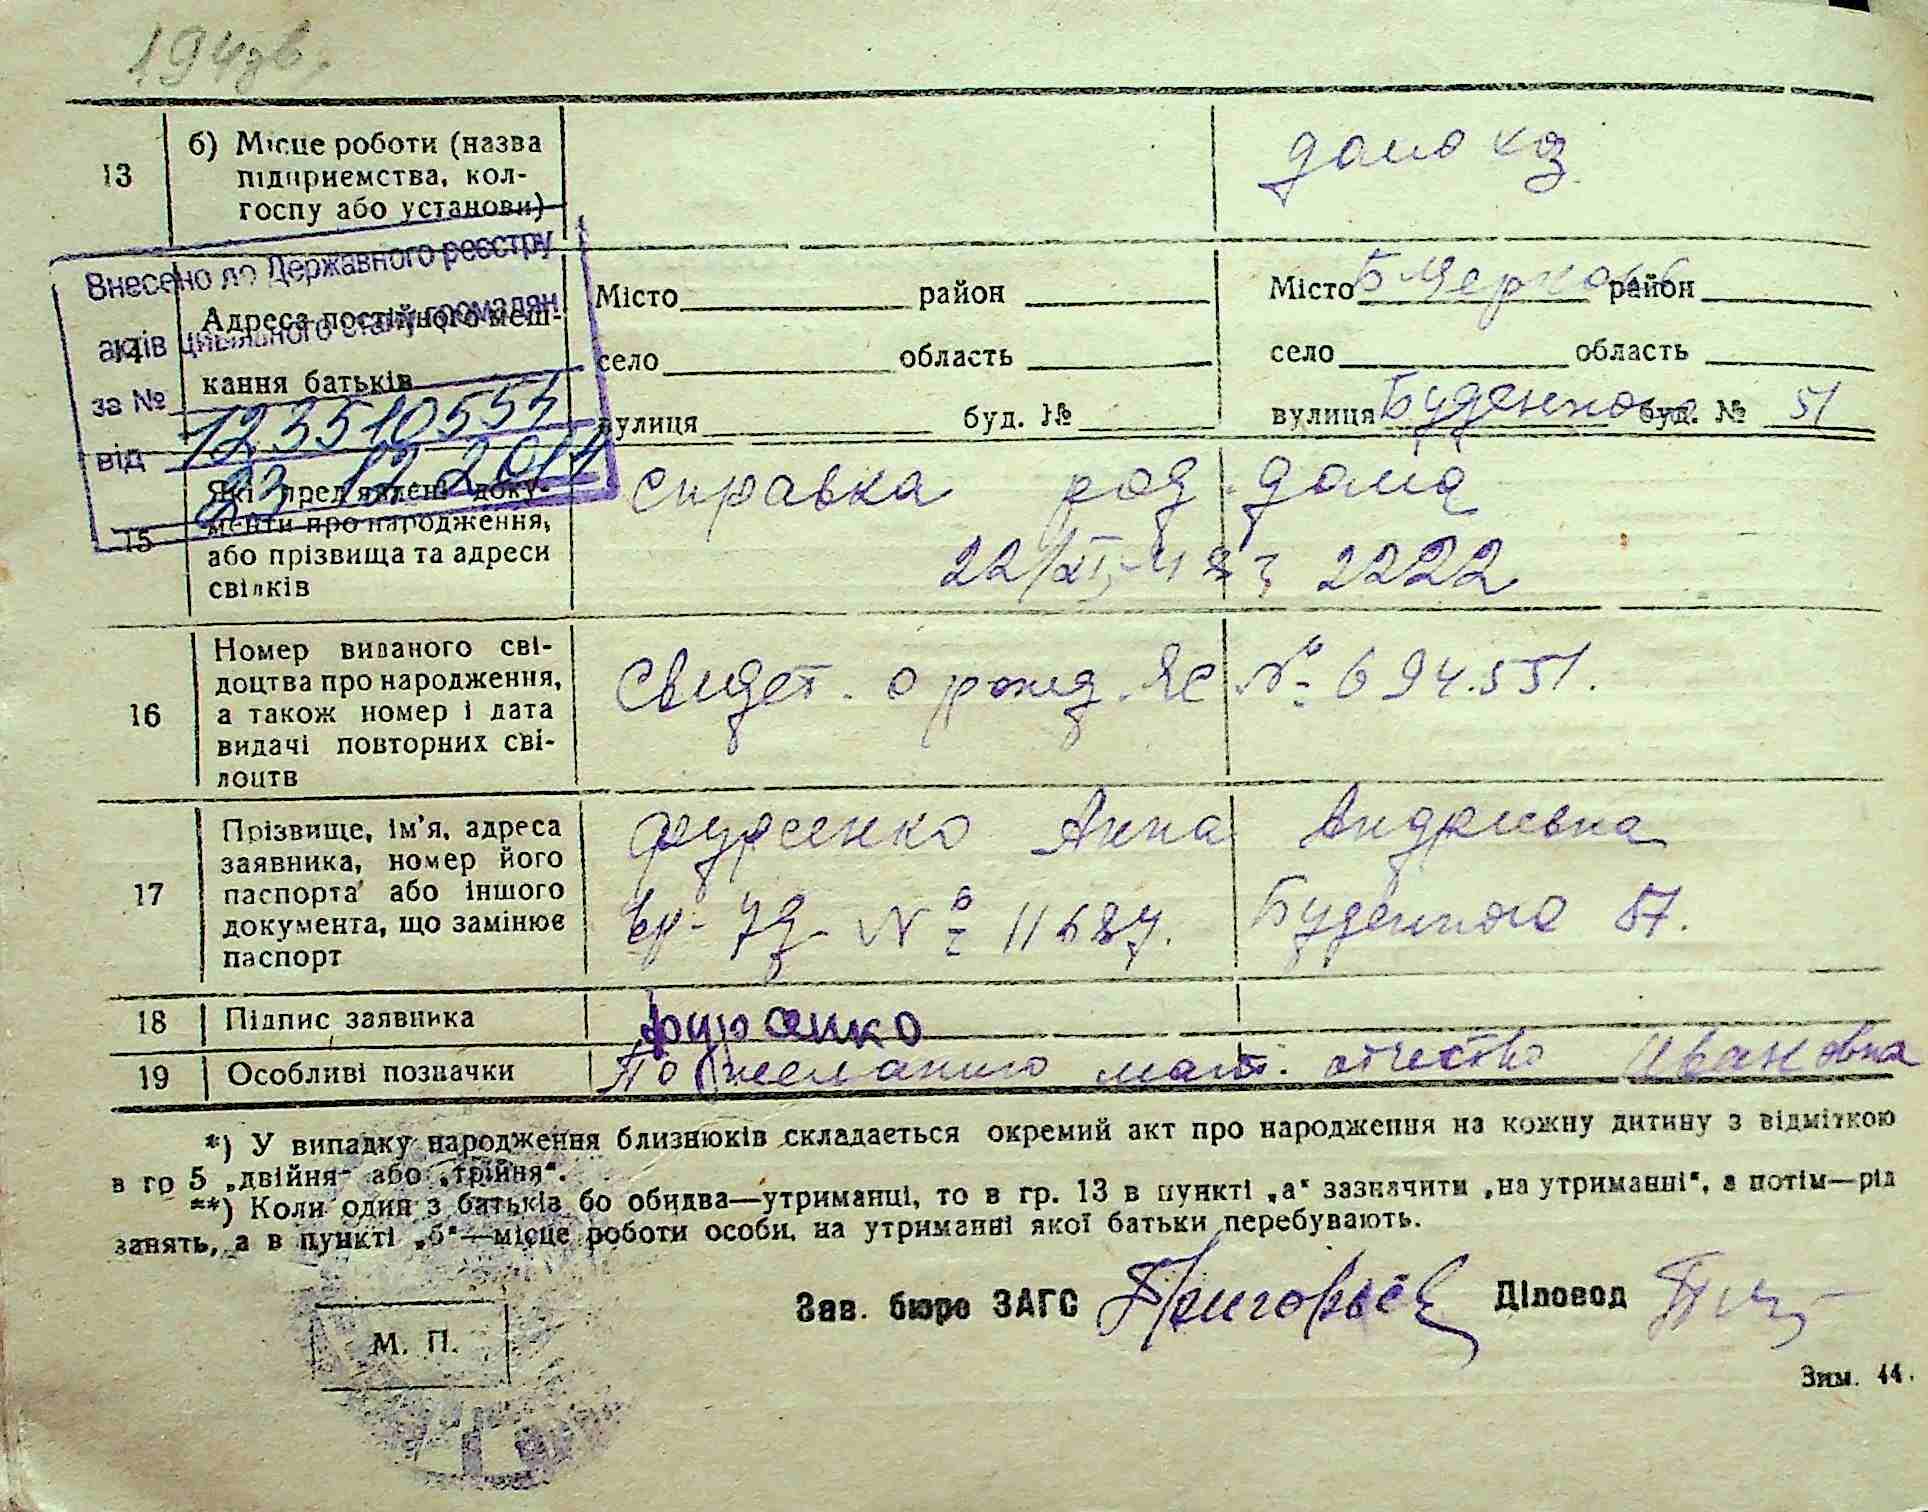 13
б) Місце роботи (назва
підприємства, кол-
госпу або установи)
домохоз
Внесено до Державного реєстру
актів цивільного стану громадян
за № 123510555
від 23.12.2011
14
Адреса постійного меш-
кання батьків
Місто район
село область
вулиця буд. №
Місто Б Церковь район
село область
вулиця Буденного буд. № 51
15
Які пред'явлені доку-
менти про народження,
або прізвища та адреси
свідків
справка род. дома
22/XI- 2222
16
Номер виданого сві-
доцтва про народження,
а також номер і дата
видачі повторних сві-
доцтв
Свидет. о рожд. ЯС № 694.551.
17
Прізвище, ім'я, адреса
заявника, номер його
паспорта або іншого
документа, що замінює
паспорт
Фурсенко Анна Андреевна
№ 11687. Буденного 57.
18 Підпис заявника
Фурсенко
19 Особливі позначки
По желанию мат. отчество Ивановна
*) У випадку народження близнюків складається окремий акт про народження на кожну дитину з відміткою
в гр 5 „двійня“ або „трійня“.
**) Коли один з батьків бо обидва—утриманці, то в гр. 13 в пункті „а“ зазначити „на утриманні“, а потім—рід
занять, а в пункті „б“—місце роботи особи, на утриманні якої батьки перебувають.
Зав. бюро ЗАГС Григорьев Діловод
М. П.
Зим. 44.